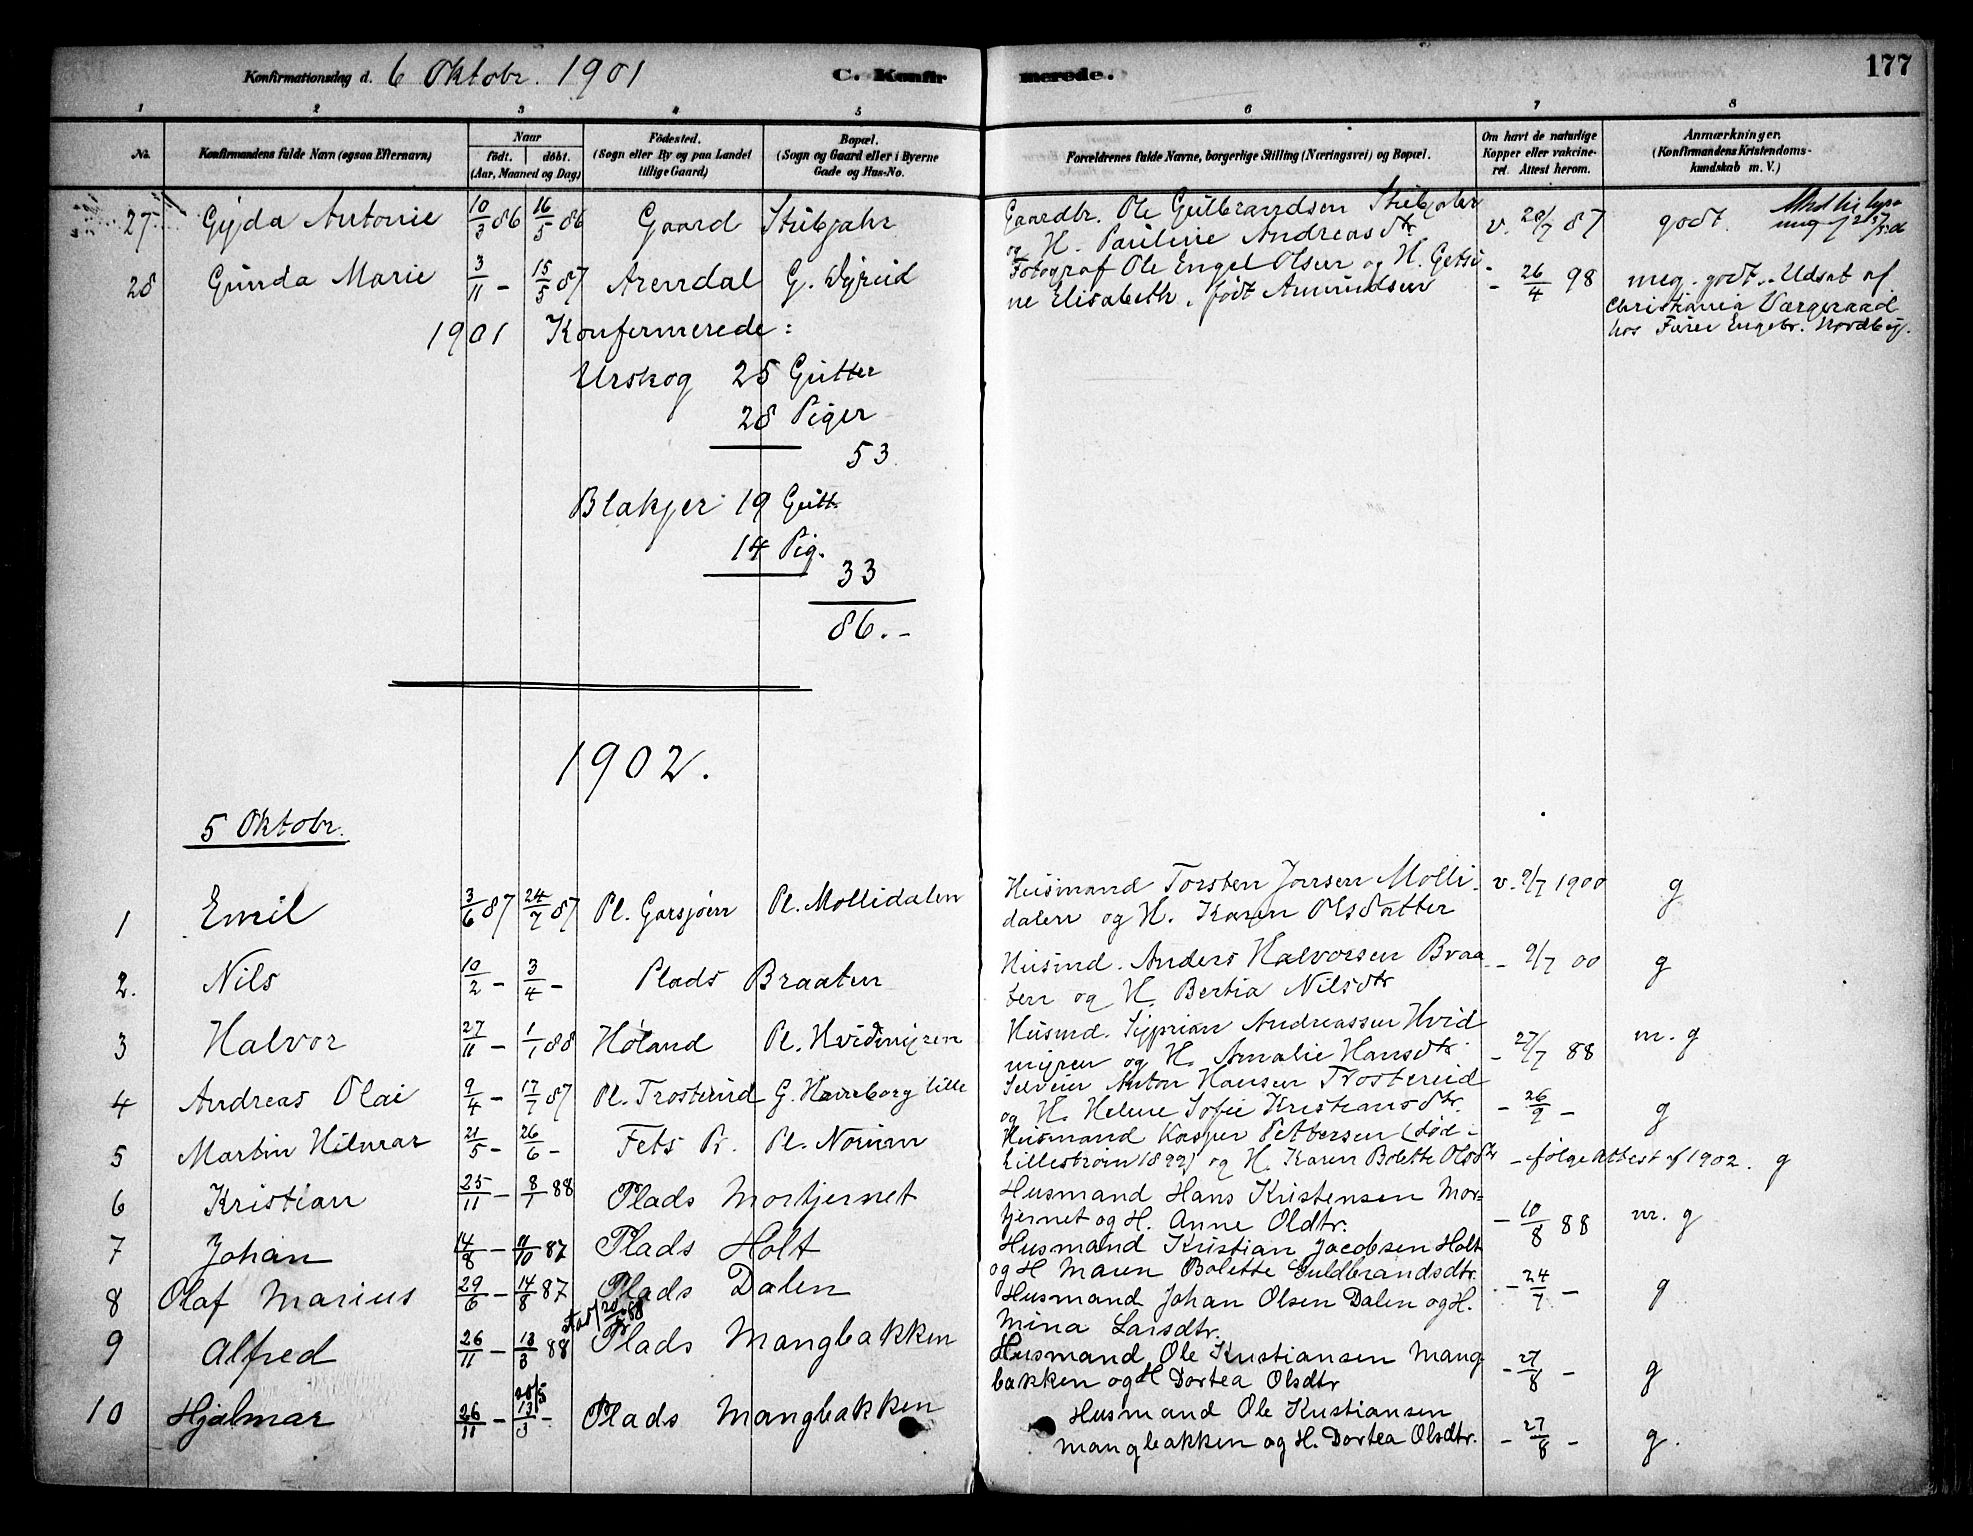 Konfirmationsdag d. 6 Oktobr. 1901 C. Konfirmerede. 177
1 2 3 4 5 6 7 8
No. Konfirmandens fulde Navn (ogsaa Efternavn) Naar født. døbt. (Aar, Maaned og Dag) Födested. (Sogn eller By og paa Landet tillige Gaard) Bopæl. (Sogn og Gaard eller i Byerne Gade og Hus-No. Forældrenes fulde Navne, borgerlige Stilling (Næringsvei) og Bopæl. Om havt de naturlige Kopper eller vakcineret. Attest herom. Anmærkninger. (Konfirmandens Kristendomskundskab m. V.)
27 Gyda Antonie 10/3 86 16/5 86 Gaard Stubjahr Gaardbr. Ole Gulbrandsen Stubjahr v. 20/7 87 godt.
og H. Pauline Andreasdtr
28 Gunda Marie 3/11 - 15/5 87 Arendal G. Dyrud Fotograf Ole Engel Olsen og H. Getsi - 26/4 98 meg. godt. Udsat af
ne Elisabeth, født Amundsen Christiania Værgeraad
hos Furer Engebr. Nordby.
1901 Konfermerede:
Urskog 25 Gutter
28 Piger
53
Blakjer 19 Gutt.
14 Pig.
33
86.-
1902.
5 Oktobr.
1 Emil 3/6 87 24/7 87 Pl. Garsjøen Pl. Mollidalen Husmand Torsten Jonsen Molli- v. 9/7 1900 g
dalen og H. Karen Olsdatter
2. Nils 10/2 - 3/4 - Plads Braaten Husmd. Anders Halvorsen Braa - 9/7 00 g
ten og H. Bertia Nilsdtr
3 Halvor 27/11 - 1/1 88 Høland Pl. Hvidmyren Husmd. Syprian Andreassen Hvid m. g
myren og H. Amalie Hansdtr - 27/7 88
4 Andreas Olai 9/4 - 17/7 87 Pl. Trosterud G. Haneborg lille Selveier Anton Hansen Trosterud
og H. Helene Sofie Kristiansdtr. - 26/9 - g
5 Martin Hilmar 21/5 - 26/6 - Fets Pr. Pl. Norum Husmand Kasper Pettersen (død i
Lillestrøm 1899) og H. Karen Bolette Olsdtr - følge Attest af 1902. g
6 Kristian 25/11 - 8/1 88 Plads Mortjernet Husmand Hans Kristensen Mor=
tjernet og H. Anne Oldtr. - 10/8 88 m. g
7 Johan 14/8 - 11/10 87 Plads Holt Husmand Kristian Jacobsen Holt
og H Maren Bolette Guldbrandsdtr. - 24/7 - g
8 Olaf Marius 29/6 - 14/8 87 Plads Dalen Husmand Johan Olsen Dalen og H.
Mina Larsdtr.
9 Alfred 26/11 - 13/3 88 Plads Mangbakken Husmand Ole Kristiansen Mang
bakken og H Dortea Olsdtr - 27/8 - g
10 Hjalmar 26/11 - 13/3 - Plads Mangbakken Husmand Ole Kristiansen
Mangbakken og H. Dortea Olsdtr. - 27/8 - g.